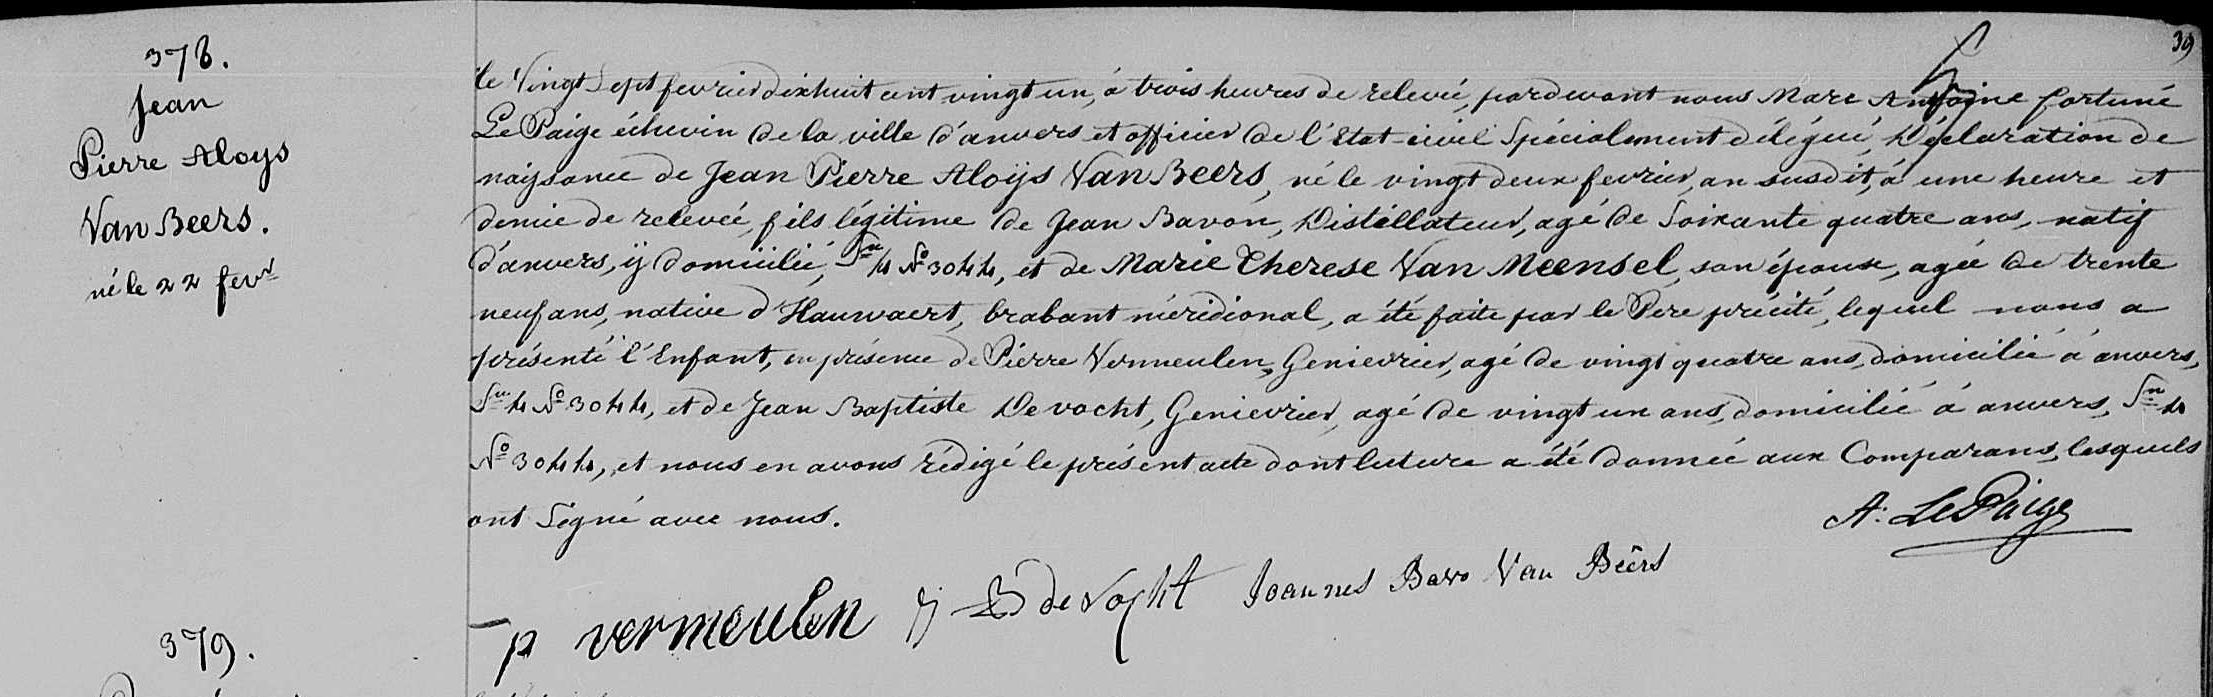 39
378.
Jean
Pierre Aloys
Van Beers.
né le 22 fevr
Le Vingt Sept fevrier dixhuit cent vingt un, à trois heures de relevée, pardevant nous Marc Antoine fortuné
Le Paige échevin de la ville d'anvers et officier de l'Etat-civil Spécialement délégué, Déclaration de
naissance de Jean Pierre Aloijs Van Beers, né le vingt deux fevrier, an susdit, à une heure et
demie de relevée, fils légitime de Jean Bavon, Distillateur, agé de Soixante quatre ans, natif
d'anvers, ij domicilié, Son 4 No 3044, et de Marie Therese Van Meensel, son épouse, agée de trente
neuf ans, native d'Hauwaert, brabant méridional, a été faite par le Pere précité, lequel nous a
présenté l'Enfant, en présence de Pierre Vermeulen, Genievrier, agé de vingt quatre ans, domicilié à anvers,
Son 4 No 3044, et de Jean Baptiste Devocht, Genievrier, agé de vingt un ans, domicilié à anvers, Son 4
No 3044, et nous en avons rédigé le présent acte dont lecture a été donnée aux Comparans, lesquels
ont Signé avec nous.
A. Le Paige
p vermeulen J B de Vocht Joannes Bavo Van Beêrs
379.